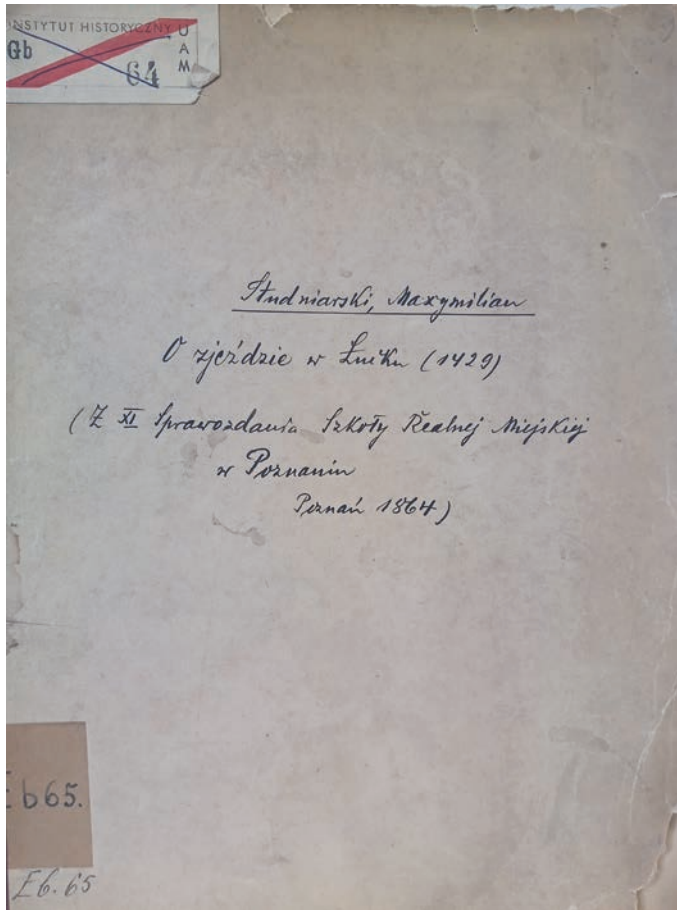 INSTYTUT HISTORYCZNY UAM
Gb
64
Studniarski, Maxymilian
O zjeździe w Łucku (1429)
(Z XI Sprawozdania Szkoły Realnej Miejskiej
w Poznaniu
Poznań 1864)
Eb65.
Eb.65